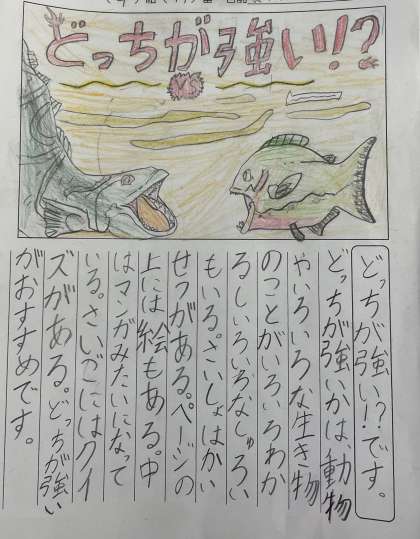 どっちが強い!?
VS
どっちが強い!?です。
どっちが強いかは、動物
やいろいろな生き物
のことがいろいろわか
るしいろいろなしゅるい
もいる。さいしょはかい
せつがある。ページの
上には絵もある。中
はマンガみたいになって
いる。さいごにはクイ
ズがある。どっちが強い
がおすすめです。